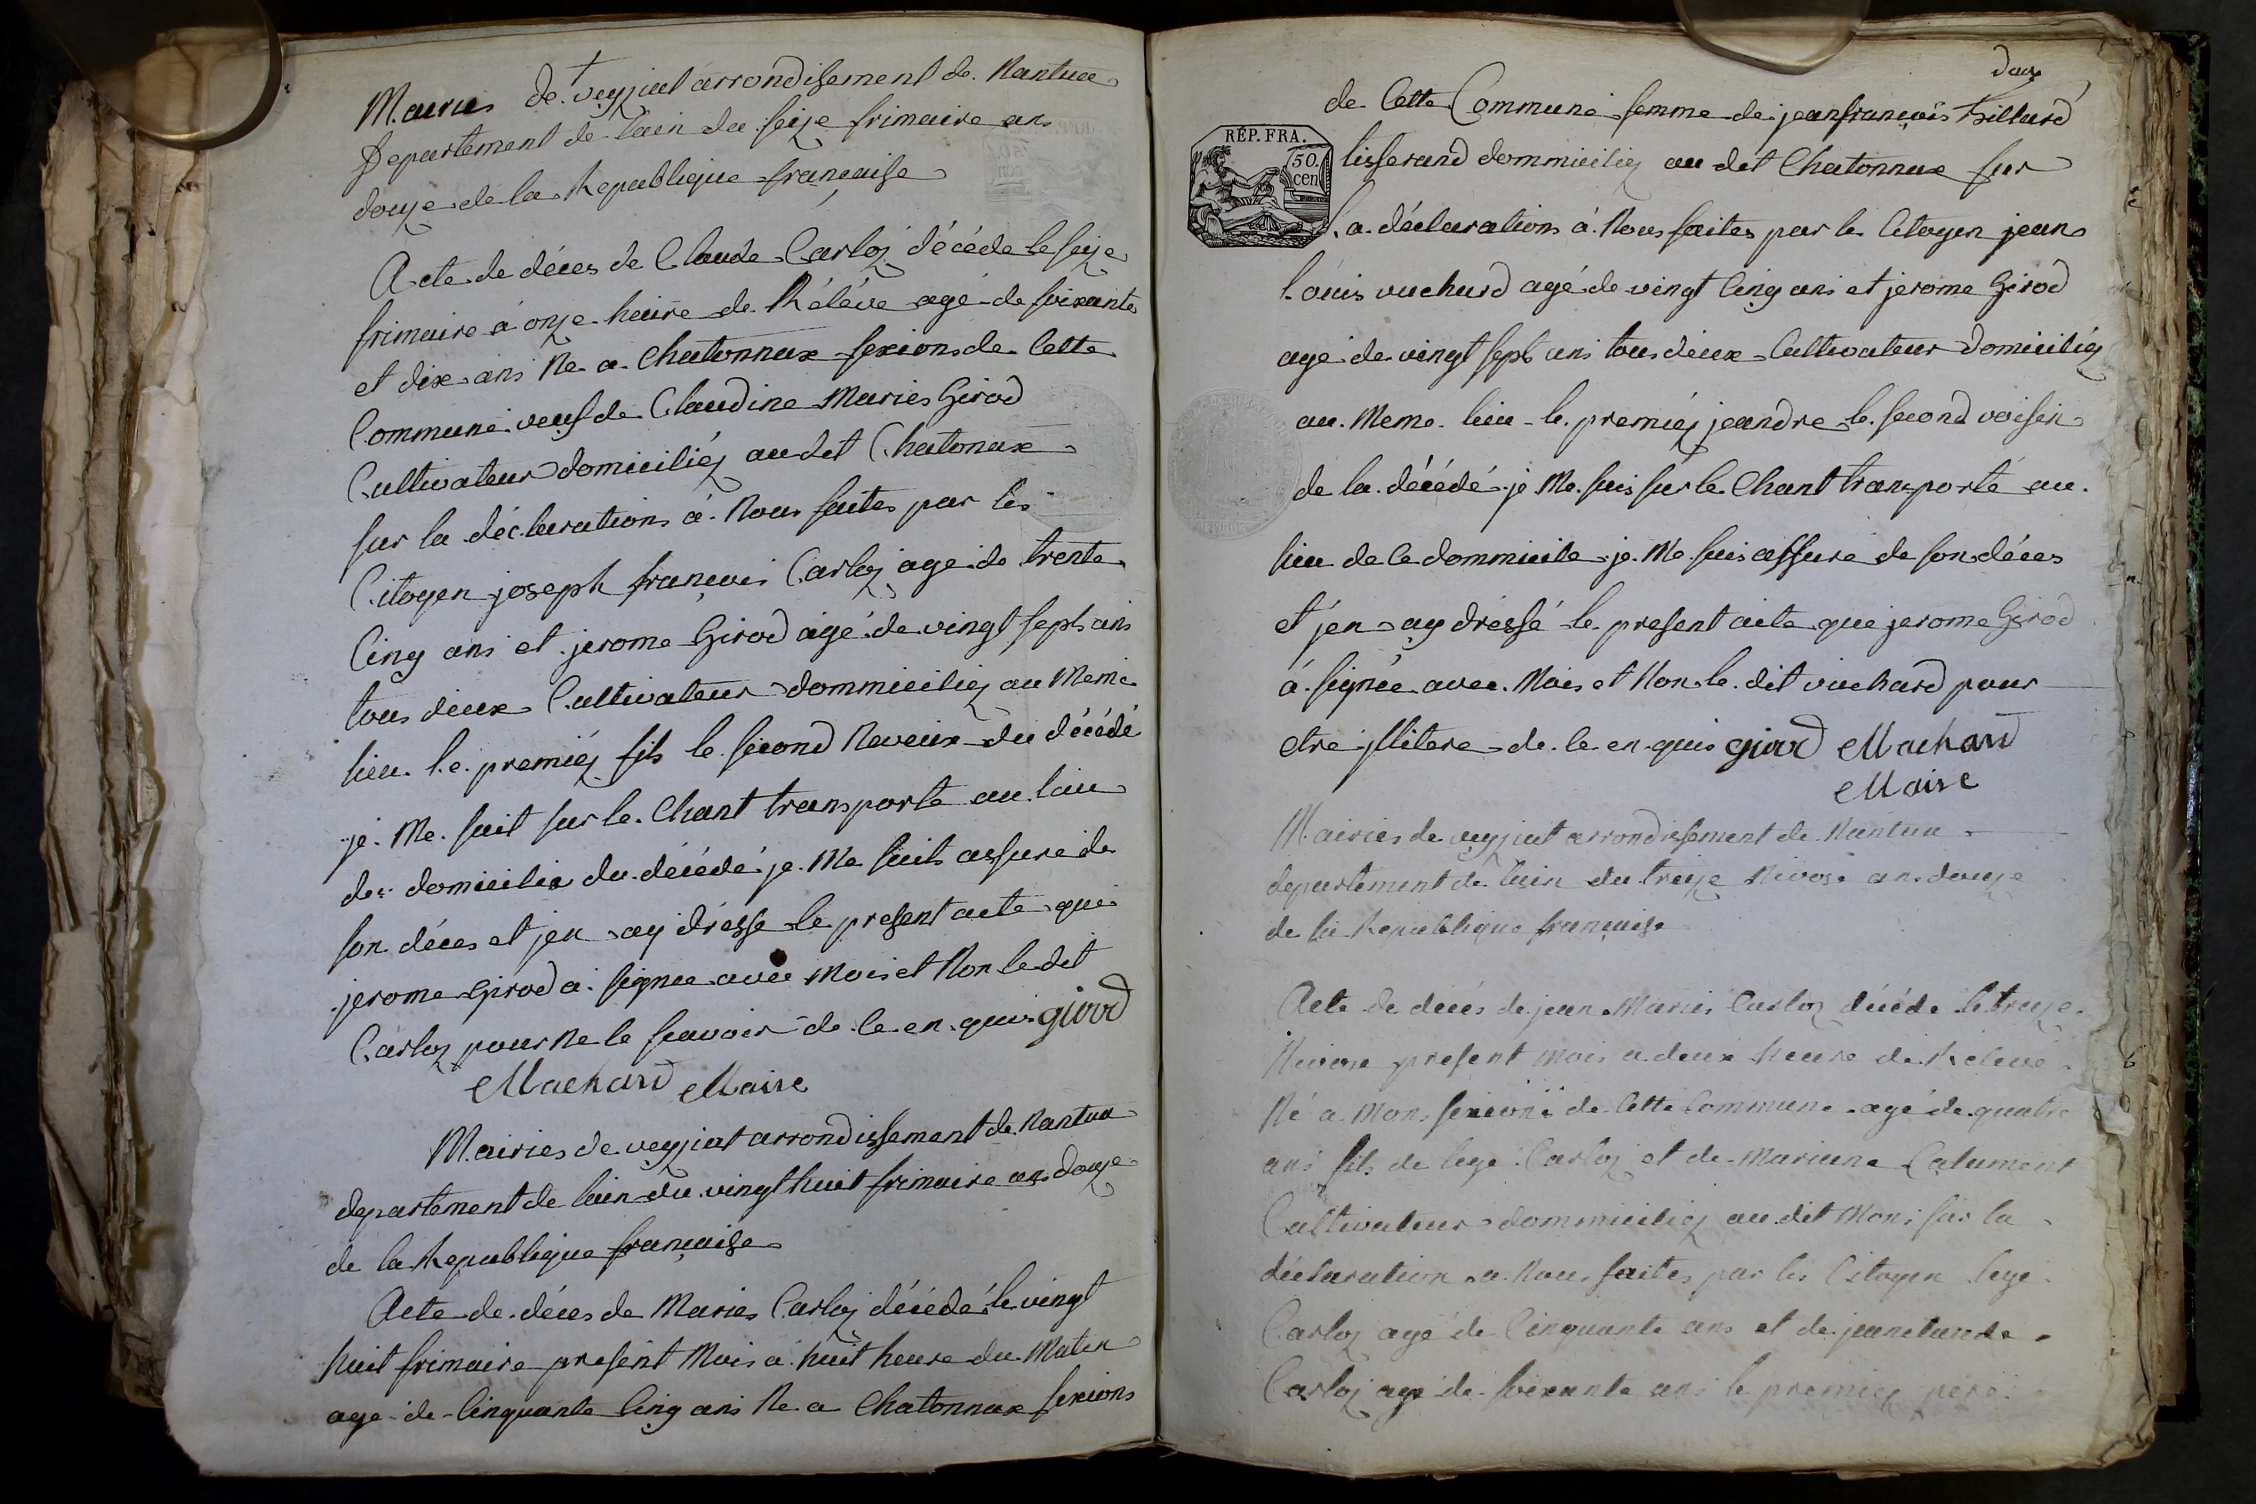 Mairies de veyziat arrondisement de Nantua
Departement de lain du seize frimaire an
douze de la Republique française
Acte de déces de Claude Carloz décéde le seize
frimaire á onze heure de Rélévé agé de soixante
et dix ans Né a Chatonnax sexions de Cette
Commune veuf de Claudine Maries Girod
Cultivateur domiciliéz au dit Chatonax
sur la déclarations á Nous faites par les
Citoyen joseph françois Carloz age de trente
Cinq ans et jerome Girod agé de vingt sept ans
tous deux Cultivateur dommiciliez au Meme
lieu le premiéz fils le second Neveux du décédé
je Me suit sur le Chant transporte au lieu
de domicilie du décédé je Me suit assure de
son déces et jen ay dresse le present acte que
jerome Girod a signee avec Mois et Non le dit
Carloz pour Ne le scavoir de ce en quis girod
Machard Maire
Mairies de veyziat arrondissement de Nantua
departement de lain du vingt huit frimaire an douze
de la Republique française
Acte de déces de Maries Carloz décédé le vingt
huit frimaire present Mois a huit heure du Maten
age de Cinquante Cinq ans Ne a Chatonnax sexions
deux
de Cette Commune femme de jean françois tillard
RÉP. FRA.
50.
cen
tisserand dommiciliez au dit Chatonnax sur
la déclarations á Nous faites par les Citoyen jean
Louis vuchard agé de vingt Cinq ans et jerome Girod
age de vingt sept ans tous deux Cultivateur domiciliéz
au Meme lieu le premiéz jeandre le second voisin
de la décédé je Me suis sur le Chant transporté au
lieu de Ce dommicile je Me suis assure de son déces
et jen ay dressé le present acte que jerome Girod
á signée avec Mois et Non le dit vuchard pour
etre illitere de ce en quis girod Machard
Maire
Mairies de veyziat arrondissement de Nantua
departement de lain du treize Nivose an douze
de la Republique française
Acte de décés de jean Maries Carloz décéde le treize
Nivose present Mois a deux heure de Relevé
Né a Mons sexions de Cette Commune agé de quatre
ans fils de leger Carloz et de Mariane Calument
Cultivateur dommiciliéz au dit Mons sur la
déclaration a Nous faites par les Citoyen leger
Carloz agé de Cinquante ans et de jean claude
Carloz age de soixante ans le premiez pere